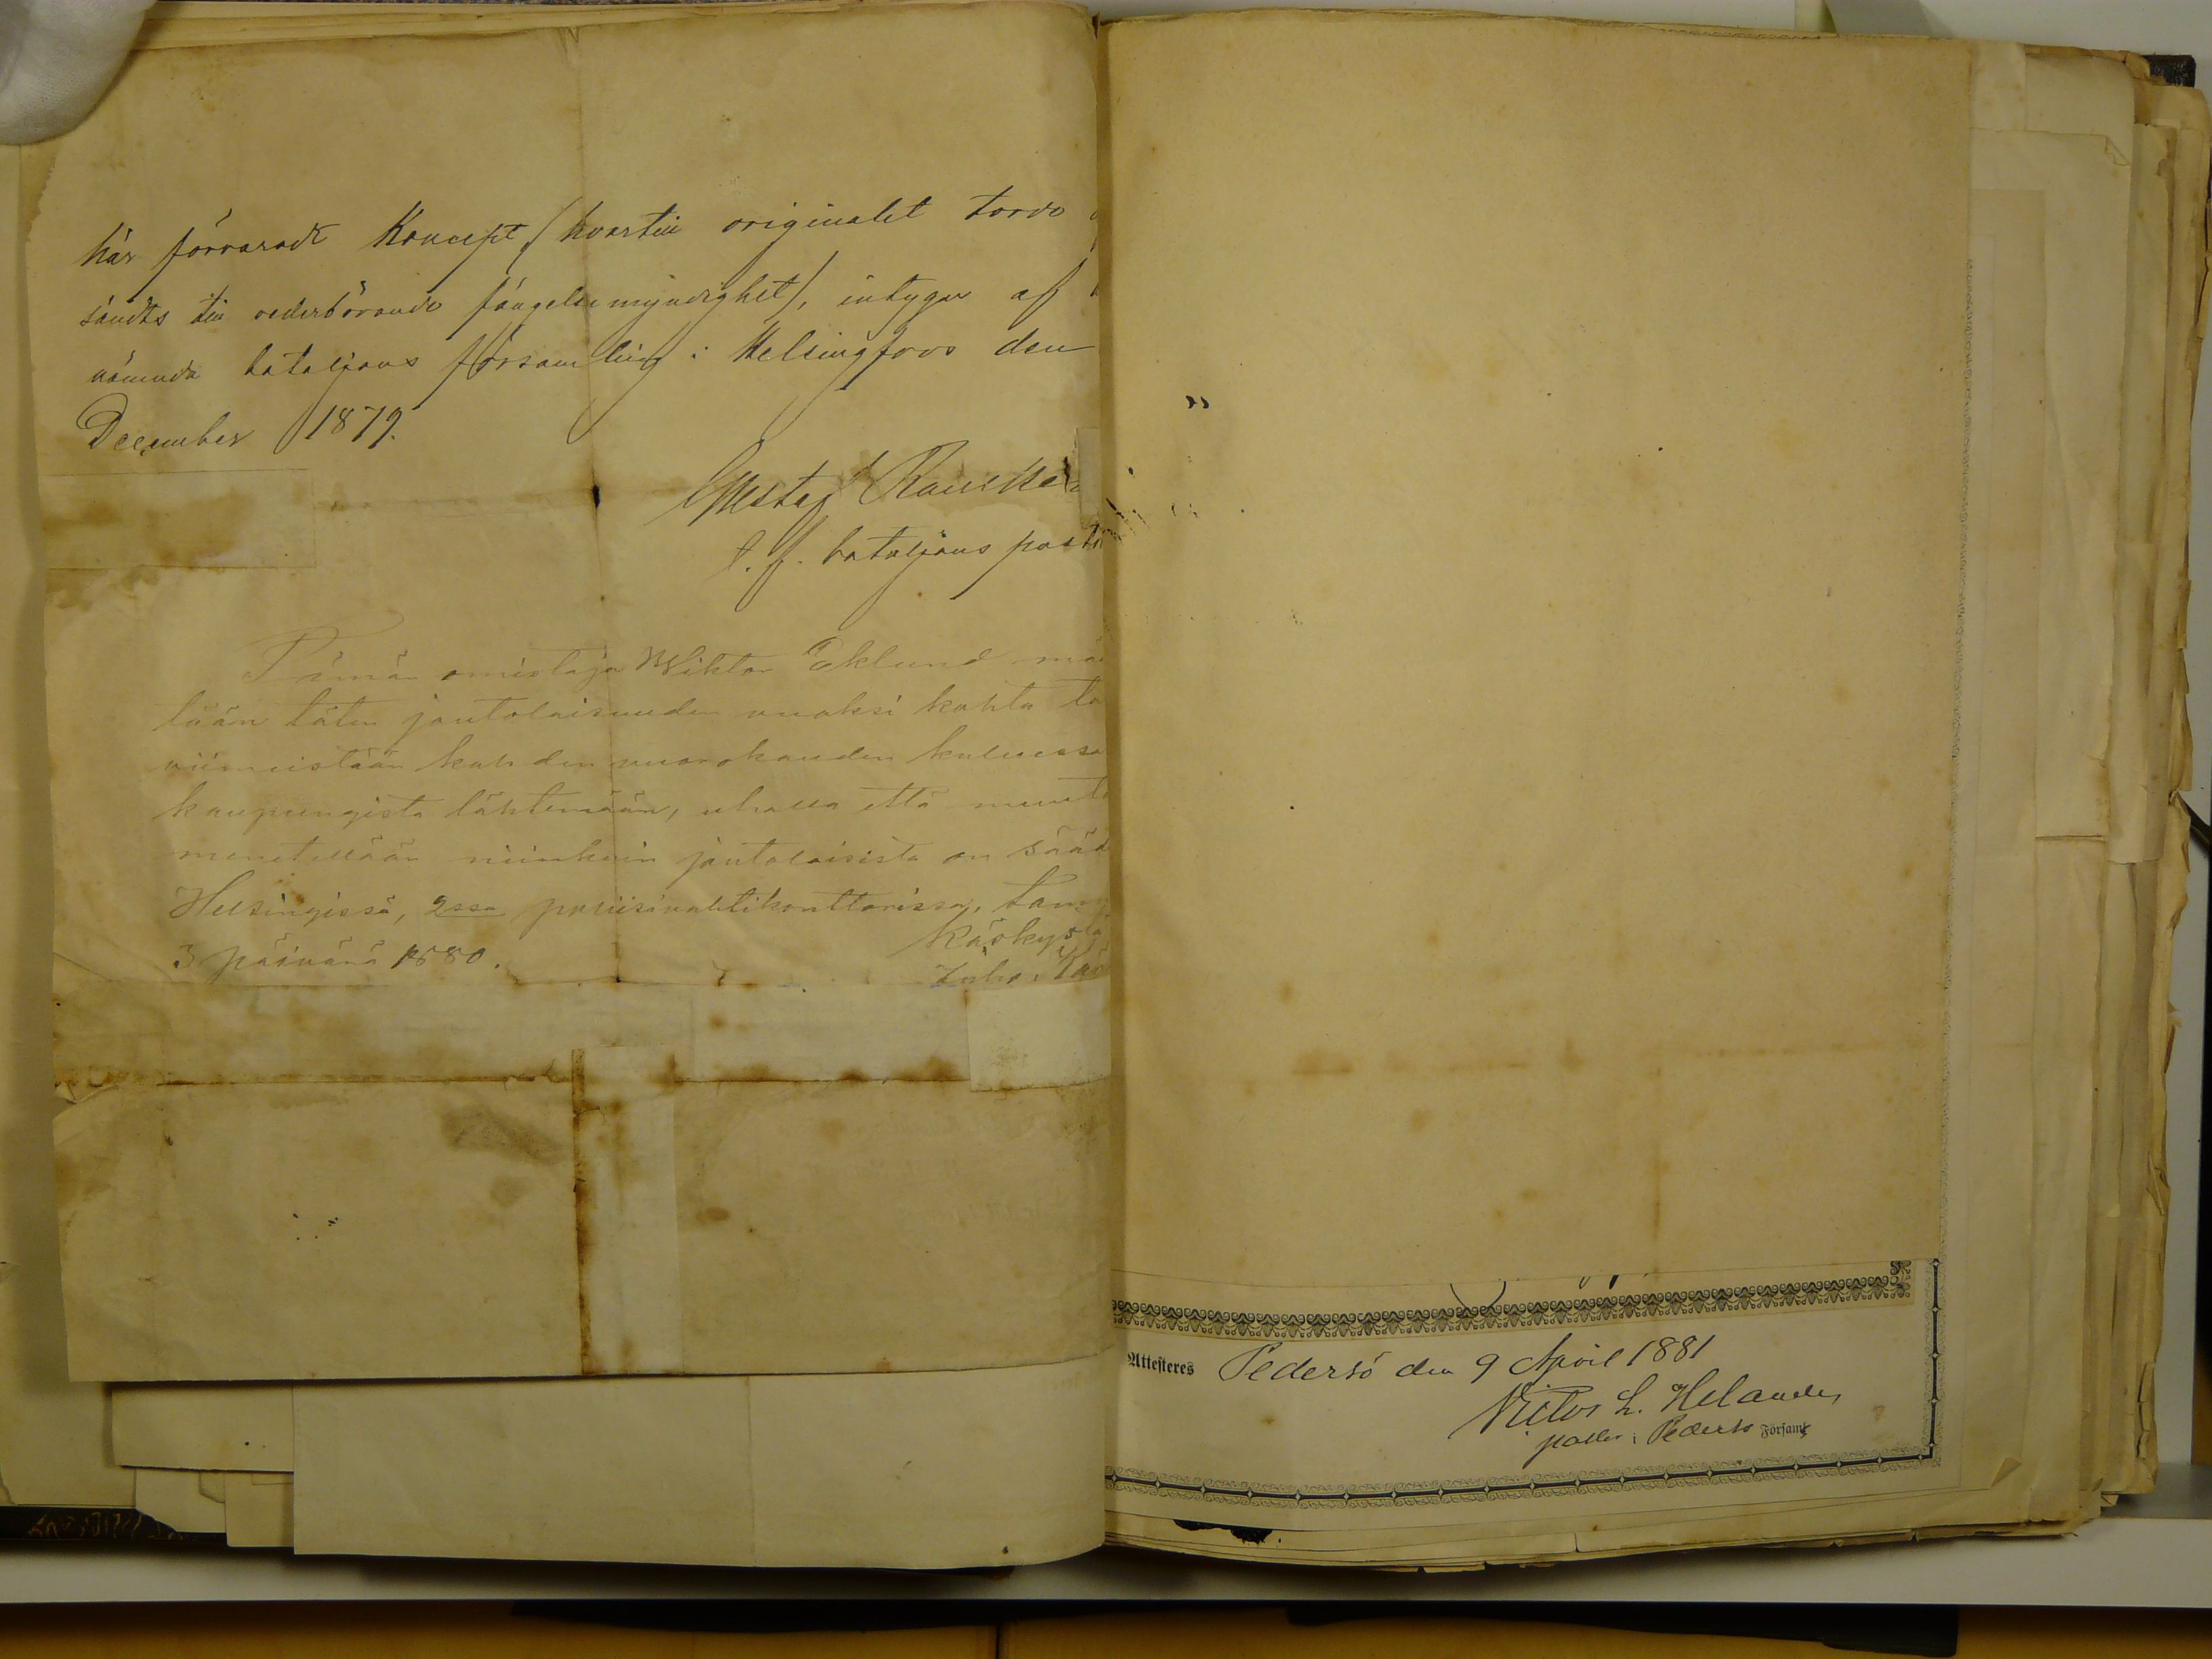 här förvarade Koncept (hvartill originalet torde
sändts till vederbörande fängelsemyndighet), intygar af
nämnda bataljons församling i Helsingfors den
December 1879.
Gustaf
t. f. bataljons past
Tämän omistaja Wiktor Eklund mä
tään täten joutolaisuuden vuoksi kahta
viimeistään kahden vuorokauden kuluessa
kaupungista lähtemään, uhalla että muut
menetellään niinkuin joutolaisista on sääd
Helsingissä, 2ssa poliisivahtikonttorissa, tam
3 päivänä 1880.
Käskystä
Juho
Attesteres Pedersö den 9 April 1881
Victor L. Helander
pastor i Pedersö Församl